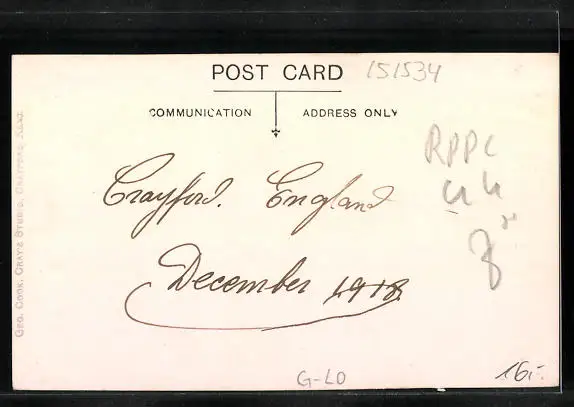 POST CARD
151534
COMMUNICATION
ADDRESS ONLY
RPPC
Crayford. England
December 1918
GEO. COOK, CRAY'S STUDIO, CRAYFORD, KENT.
G-LD
16,-